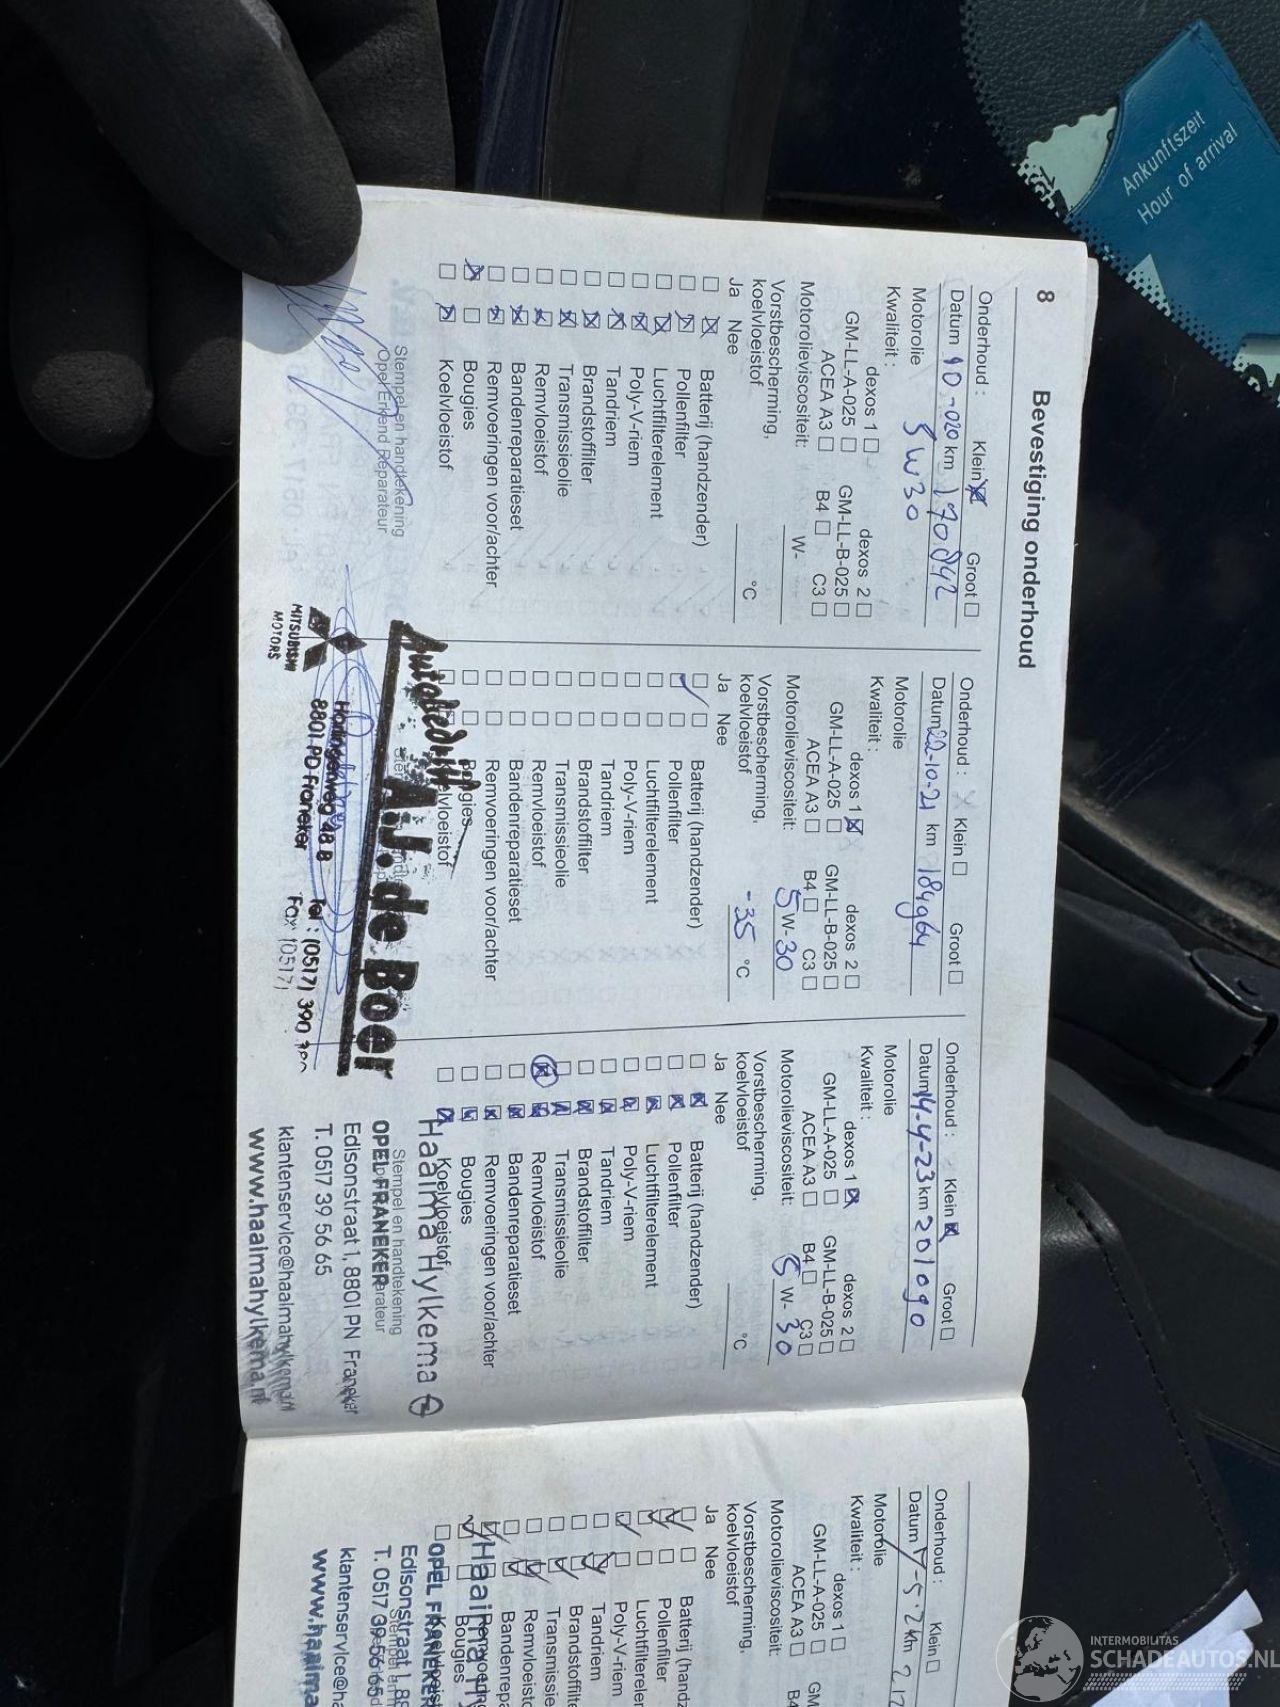 Ankunftszeit
Hour of arrival
8 Bevestiging onderhoud
Onderhoud : Klein Groot
Datum 10-020 km 170.842
Motorolie 5W30
Kwaliteit :
dexos 1 dexos 2
GM-LL-A-025 GM-LL-B-025
ACEA A3 B4 C3
Motorolieviscositeit: W-
Vorstbescherming,
koelvloeistof °C
Ja Nee
Batterij (handzender)
Pollenfilter
Luchtfilterelement
Poly-V-riem
Tandriem
Brandstoffilter
Transmissieolie
Remvloeistof
Bandenreparatieset
Remvoeringen voor/achter
Bougies
Koelvloeistof
Stempel en handtekening
Opel Erkend Reparateur
Onderhoud : Klein Groot
Datum 22-10-21 km 184964
Motorolie
Kwaliteit :
dexos 1 dexos 2
GM-LL-A-025 GM-LL-B-025
ACEA A3 B4 C3
Motorolieviscositeit: 5 W- 30
Vorstbescherming,
koelvloeistof -35 °C
Ja Nee
Batterij (handzender)
Pollenfilter
Luchtfilterelement
Poly-V-riem
Tandriem
Brandstoffilter
Transmissieolie
Remvloeistof
Bandenreparatieset
Remvoeringen voor/achter
Bougies
Koelvloeistof
Autobedrijf
A.J. de Boer
Harlingerweg 48 B
8801 PD Franeker Tel : (0517) 390
Fax (0517)
MITSUBISHI
MOTORS
Onderhoud : Klein Groot
Datum 14-4-23 km 201090
Motorolie
Kwaliteit :
dexos 1 dexos 2
GM-LL-A-025 GM-LL-B-025
ACEA A3 B4 C3
Motorolieviscositeit: 5 W- 30
Vorstbescherming,
koelvloeistof °C
Ja Nee
Batterij (handzender)
Pollenfilter
Luchtfilterelement
Poly-V-riem
Tandriem
Brandstoffilter
Transmissieolie
Remvloeistof
Bandenreparatieset
Remvoeringen voor/achter
Bougies
Koelvloeistof
Haaima Hylkema
Stempel en handtekening
OPEL FRANEKER
Edisonstraat 1, 8801 PN Franeker
T. 0517 39 56 65
klantenservice@haaimahylkema.nl
www.haaimahylkema.nl
Onderhoud : Klein
Datum 7-5-2 km 217
Motorolie
Kwaliteit :
dexos 1
GM-LL-A-025 GM
ACEA A3 B4
Motorolieviscositeit:
Vorstbescherming,
koelvloeistof
Ja Nee
Batterij (hand
Pollenfilter
Luchtfilterele
Poly-V-riem
Tandriem
Brandstoffilte
Transmissie
Remvloeisto
Bandenrepa
Bougies
Haaima Hy
OPEL FRANEKE
Edisonstraat 1, 88
T. 0517 39 56 65
klantenservice@ha
www.haaima
INTERMOBILITAS
SCHADEAUTOS.NL